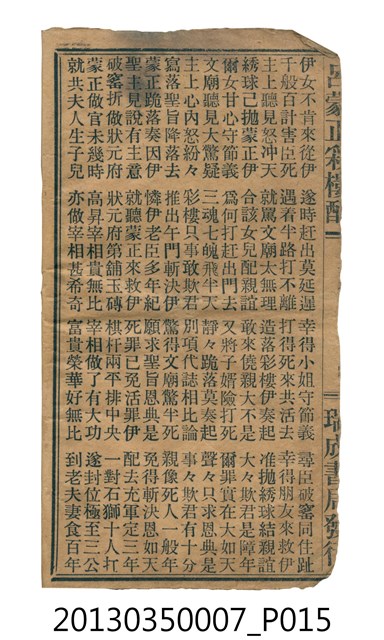 呂蒙正彩樓配 一 瑞成書局發行
伊女不肯來從伊 遂時赶出莫延遲 幸得小姐守節義 尋臣破窰同住趾
千般百計害臣死 遇着半路打不離 打得死來共活去 幸得朋友來救伊
主上聽見怒冲天 就罵文廟太無理 造落彩樓伊奏起 准拋綉球結親誼
綉球己拋蒙正伊 合該女兒配親誼 敢來僥親大不是 大々欺君是障年
爾女甘心守節義 為何打赶出門去 又將子婿險打死 爾罪實在大如天
文廟聽見大驚疑 三魂七魄飛半天 靜々跪落莫奏起 聲々只求恩典是
主上心內怒紛々 彩樓只事敢欺君 別項代誌相比論 事々欺君有十分
寫落聖旨降落去 推出午門斬決伊 驚得文廟驚半死 親像死人一般年
蒙正跪落奏因伊 憐伊老臣多年紀 願求聖旨恩典是 免得斬決恩如天
聖主見說有主意 就聽蒙正來救伊 死罪已免活罪伊 配去充軍定三年
破窰折做狀元府 狀元府第舖玉磚 棋杆兩平排中央 一對石獅十人打
蒙正做官未幾時 高昇宰相貴無比 宰相做了有大功 遂封位極至三公
就共夫人生子兒 亦做宰相甚希奇 富貴榮華好無比 到老夫妻食百年
20130350007_P015